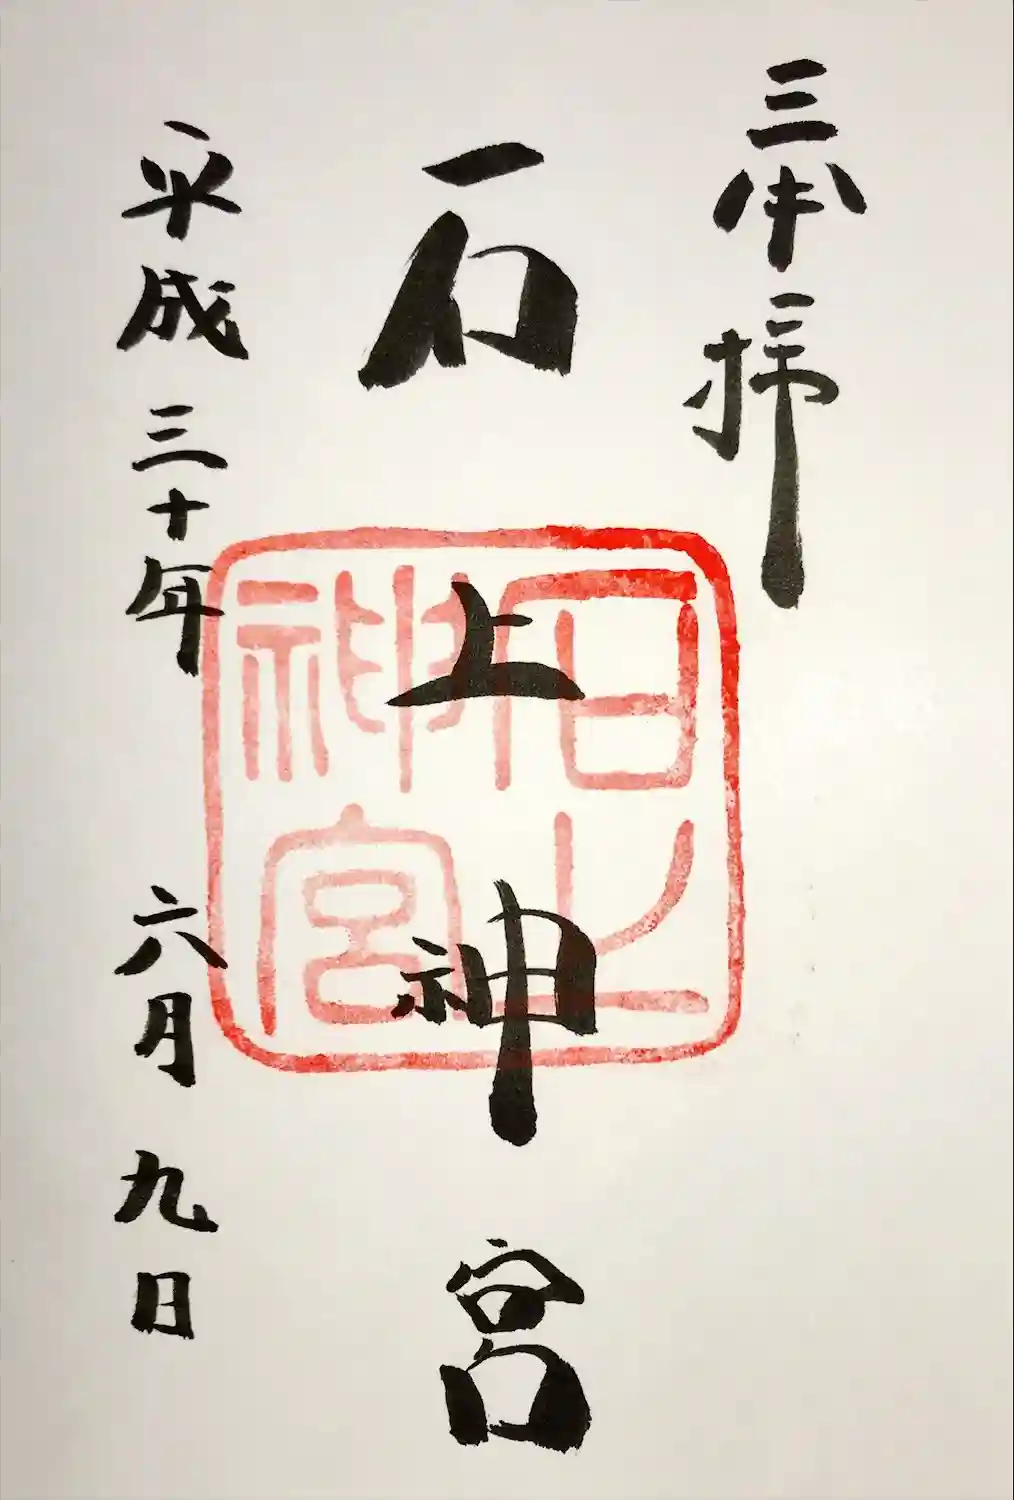 奉拝
石上神宮
平成三十年 六月 九日
石上
神宮